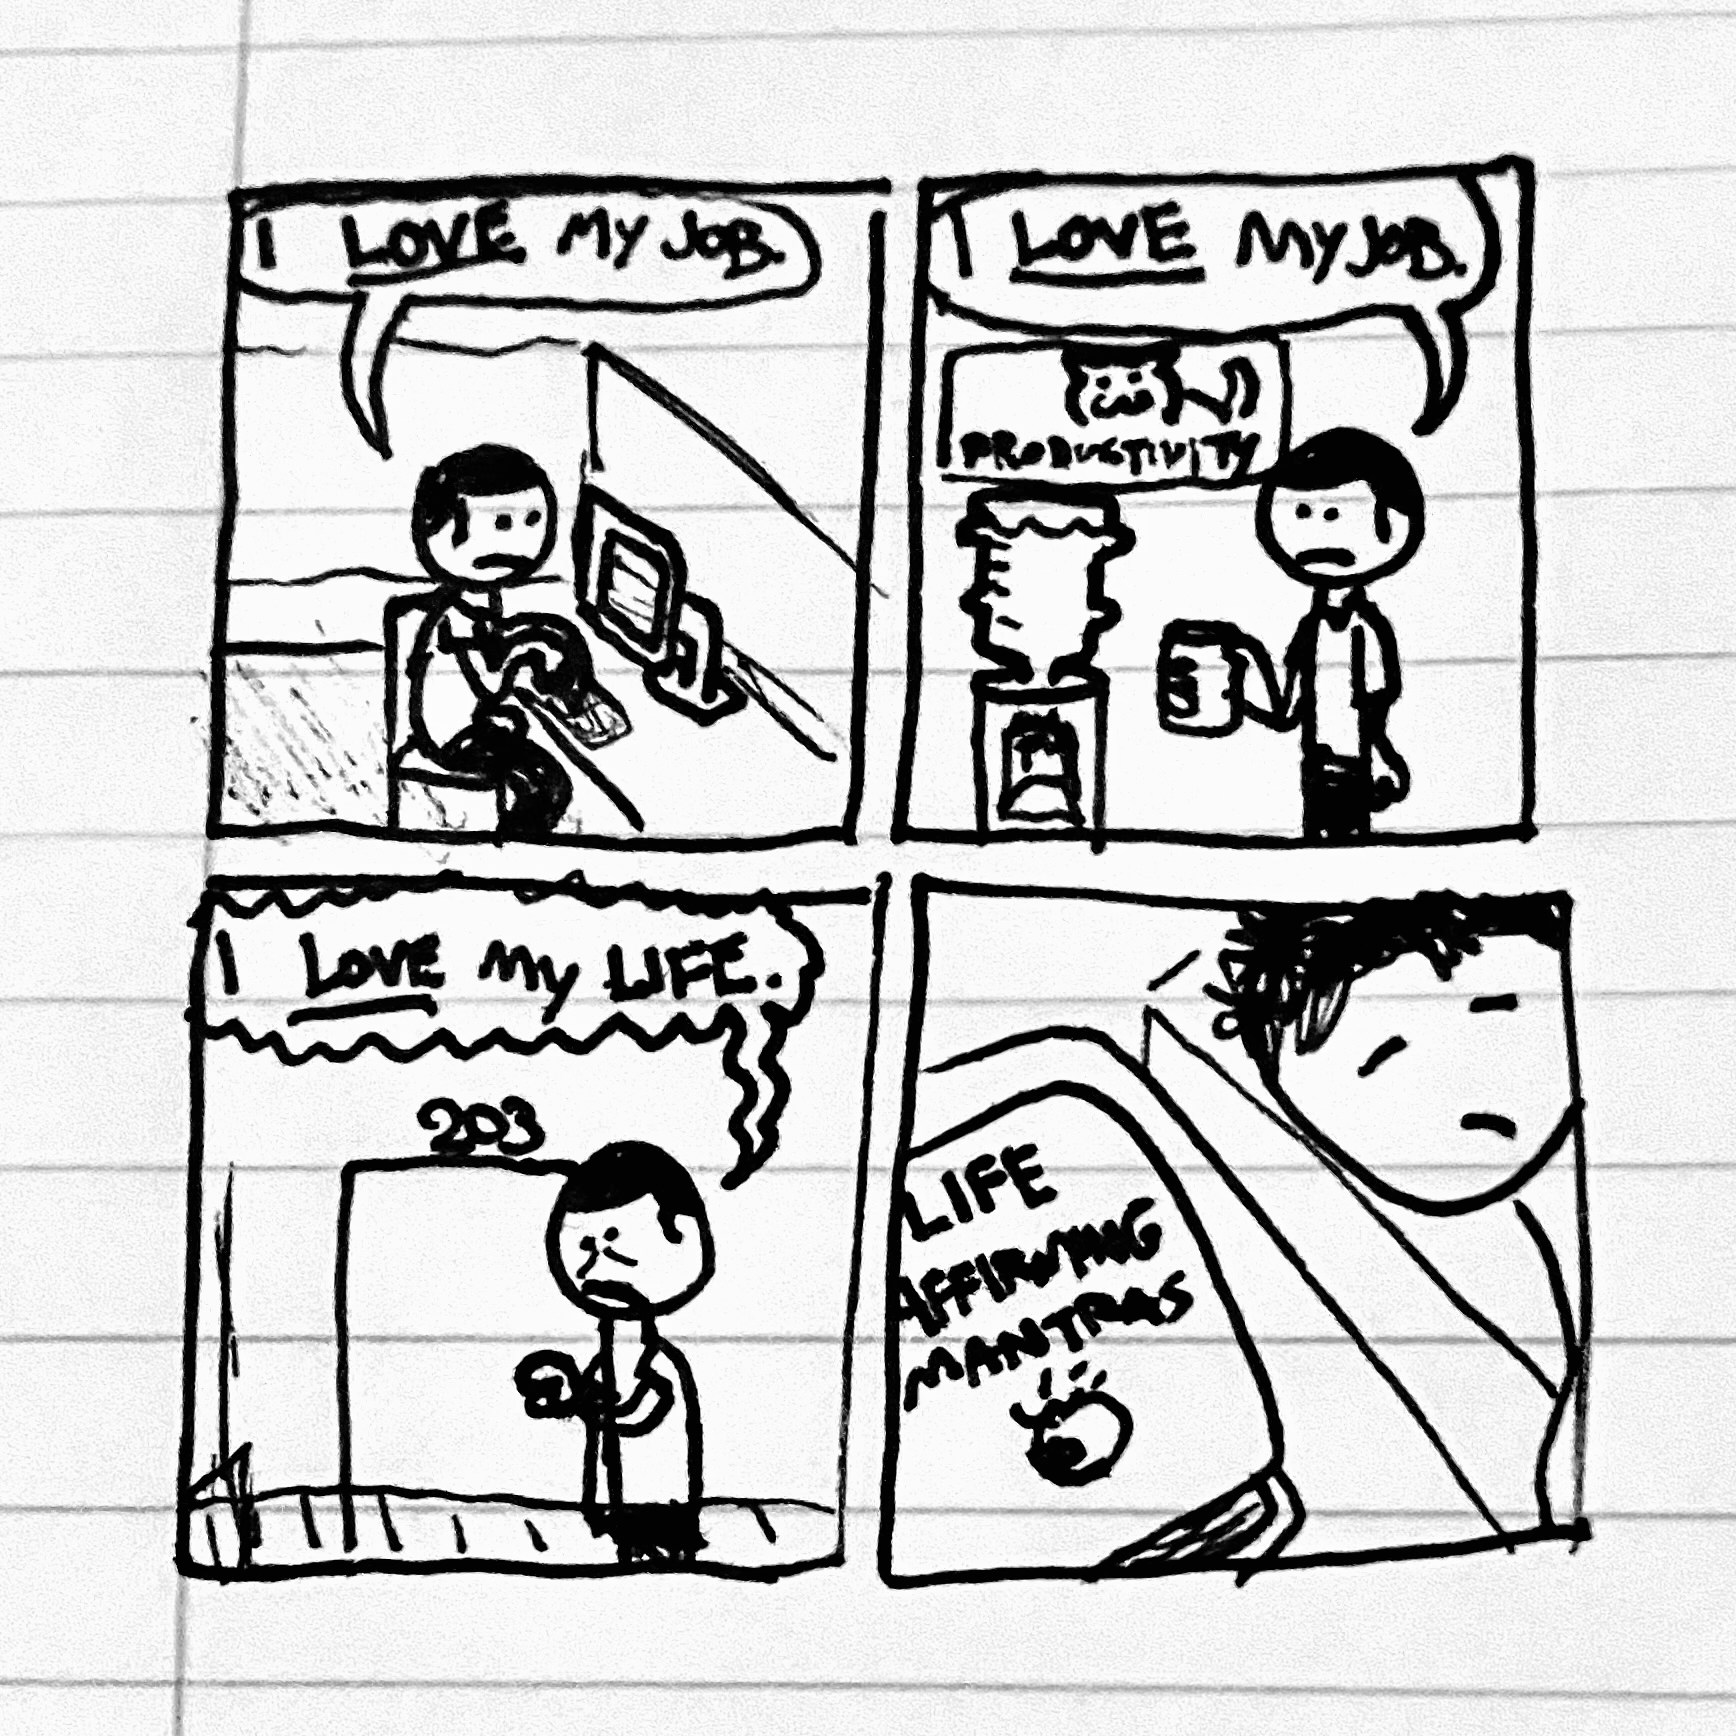 I LOVE MY JOB.
I LOVE MY JOB.
PRODUCTIVITY
I LOVE MY LIFE.
203
LIFE
AFFIRMING
MANTRAS